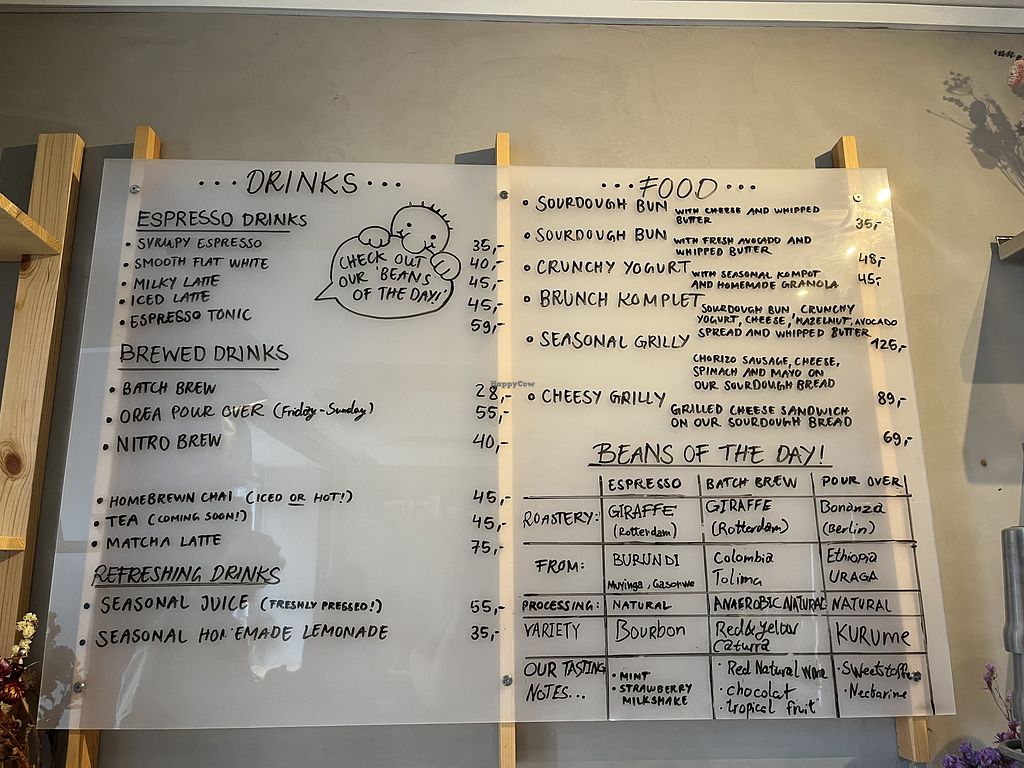 ...DRINKS...
ESPRESSO DRINKS
• SYRUPY ESPRESSO 35,-
• SMOOTH FLAT WHITE 40,-
• MILKY LATTE 45,-
• ICED LATTE 45,-
• ESPRESSO TONIC 59,-
CHECK OUT
OUR 'BEANS
OF THE DAY!'
BREWED DRINKS
• BATCH BREW 28,-
• OREA POUR OVER (Friday-Sunday) 55,-
• NITRO BREW 40,-
• HOMEBREWN CHAI (ICED OR HOT!) 45,-
• TEA (COMING SOON!) 45,-
• MATCHA LATTE 75,-
REFRESHING DRINKS
• SEASONAL JUICE (FRESHLY PRESSED!) 55,-
• SEASONAL HOMEMADE LEMONADE 35,-
...FOOD...
• SOURDOUGH BUN WITH CHEESE AND WHIPPED
BUTTER 35,-
• SOURDOUGH BUN WITH FRESH AVOCADO AND
WHIPPED BUTTER 48,-
• CRUNCHY YOGURT WITH SEASONAL KOMPOT
AND HOMEMADE GRANOLA 45,-
• BRUNCH KOMPLET SOURDOUGH BUN, CRUNCHY
YOGURT, CHEESE, HAZELNUT, AVOCADO
SPREAD AND WHIPPED BUTTER 125,-
• SEASONAL GRILLY
CHORIZO SAUSAGE, CHEESE,
SPINACH AND MAYO ON
OUR SOURDOUGH BREAD 89,-
• CHEESY GRILLY
GRILLED CHEESE SANDWICH
ON OUR SOURDOUGH BREAD 69,-
BEANS OF THE DAY!
ESPRESSO BATCH BREW POUR OVER
ROASTERY: GIRAFFE GIRAFFE Bonanza
(Rotterdam) (Rotterdam) (Berlin)
FROM: BURUNDI Colombia Ethiopia
Muyinga, Gasorwe Tolima URAGA
PROCESSING: NATURAL ANAEROBIC NATURAL NATURAL
VARIETY Bourbon Red & Yelow KURUMe
Caturra
OUR TASTING • MINT • Red Natural Wine • Sweetstoffe
NOTES... • STRAWBERRY • chocolat • Nectarine
MILKSHAKE • tropical fruit
HappyCow